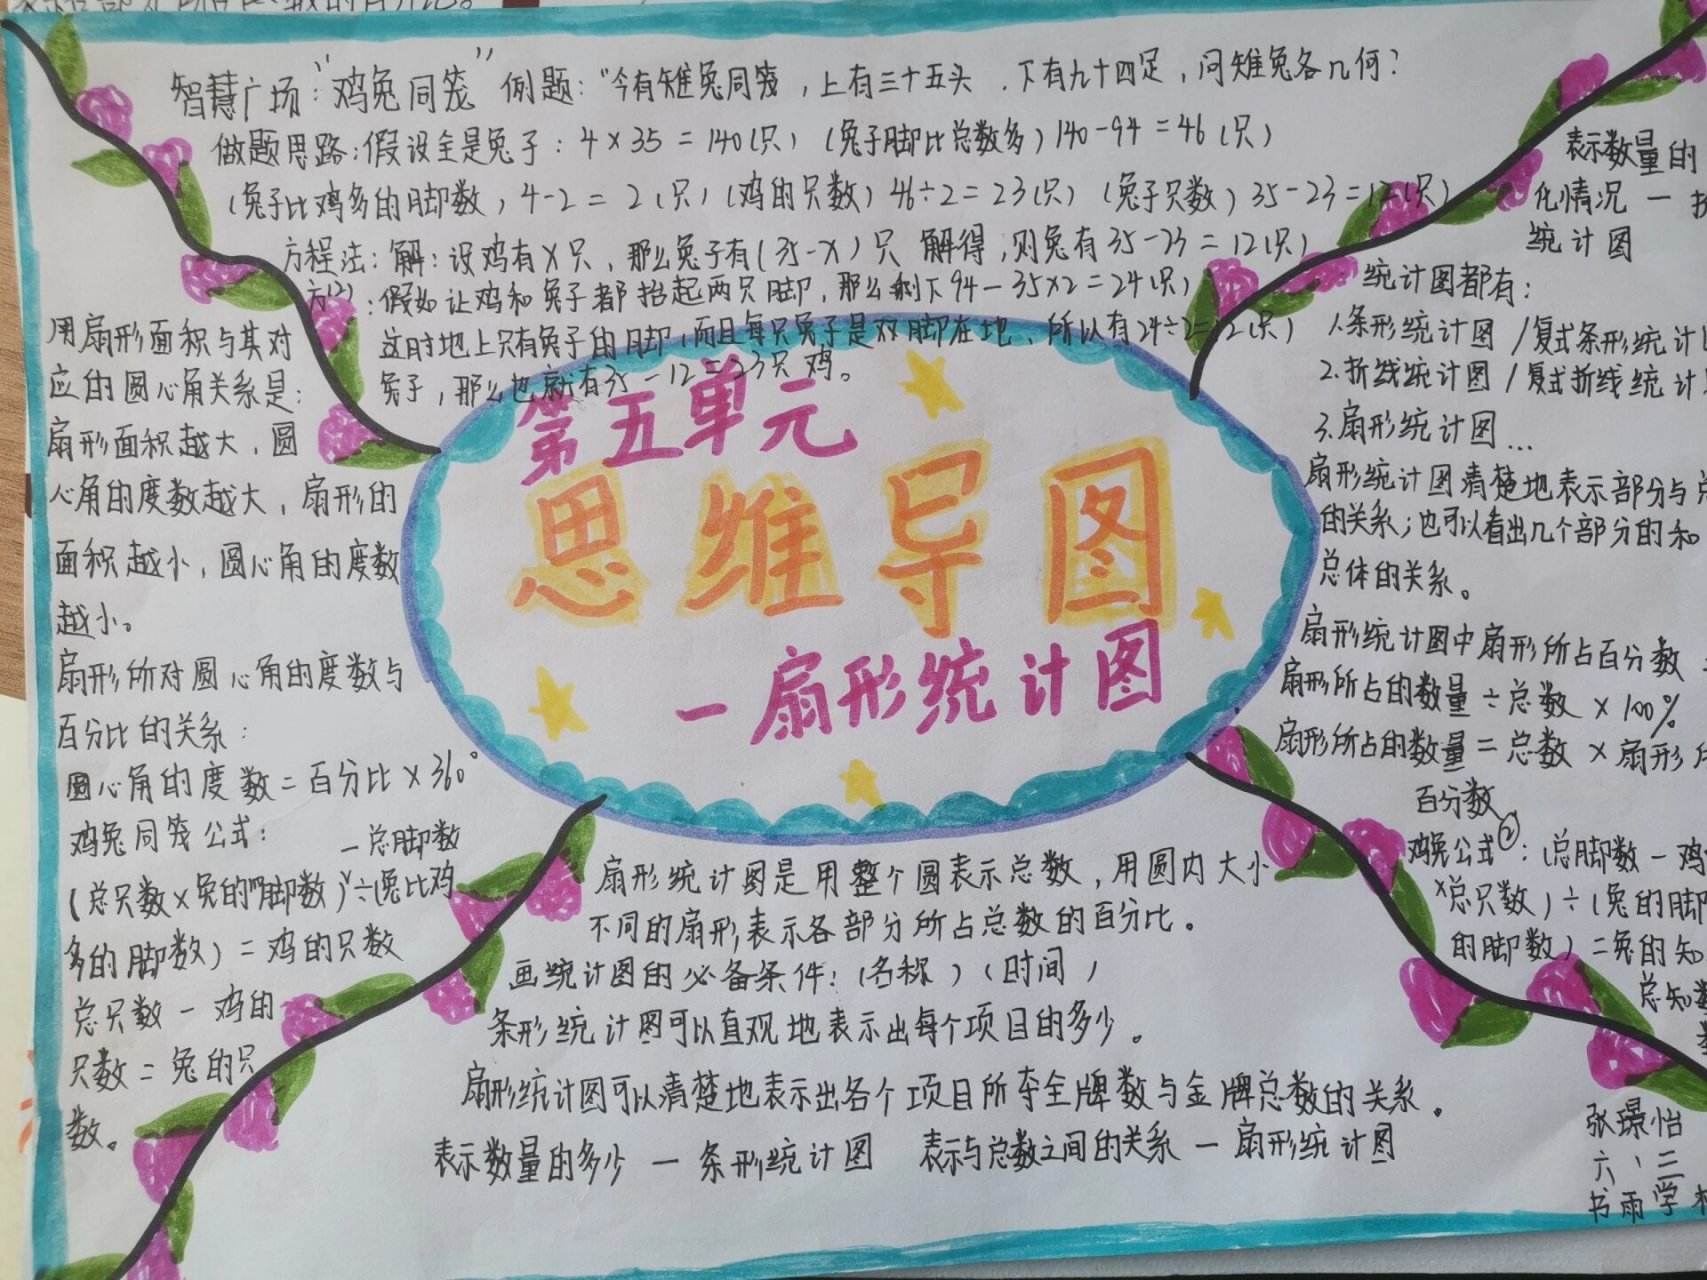 智慧广场:“鸡兔同笼” 例题:“今有雉兔同笼,上有三十五头,下有九十四足,问雉兔各几何?
做题思路:假设全是兔子:4×35=140(只) (兔子脚比总数多)140-94=46(只)
(兔子比鸡多的脚数)4-2=2(只)(鸡的只数)46÷2=23(只)(兔子只数)35-23=12(只)
方程法:解:设鸡有X只,那么兔子有(35-X)只 解得,则兔有35-23=12(只)
假如让鸡和兔子都抬起两只脚,那么剩下94-35×2=24(只)
这时地上只有兔子的脚,而且每只兔子是双脚在地,所以有24÷2=12(只)
兔子,那么也就有35-12=23只鸡。
用扇形面积与其对
应的圆心角关系是:
扇形面积越大,圆
心角的度数越大,扇形的
面积越小,圆心角的度数
越小。
扇形所对圆心角的度数与
百分比的关系:
圆心角的度数=百分比×360°
鸡兔同笼公式:
(总只数×兔的脚数-总脚数)÷(兔比鸡
多的脚数)=鸡的只数
总只数-鸡的
只数=兔的只
数。
第五单元
思维导图
一扇形统计图
表示数量的
化情况一折
统计图
统计图都有:
1.条形统计图/复式条形统计
2.折线统计图/复式折线统计
3.扇形统计图...
扇形统计图清楚地表示部分与总
的关系;也可以看出几个部分的和
总体的关系。
扇形统计图中扇形所占百分数
扇形所占的数量÷总数×100%
扇形所占的数量=总数×扇形
百分数
鸡兔公式②:(总脚数-鸡
×总只数)÷(兔的脚
的脚数)=兔的知
总知数
扇形统计图是用整个圆表示总数,用圆内大小
不同的扇形表示各部分所占总数的百分比。
画统计图的必备条件:(名称)(时间)
条形统计图可以直观地表示出每个项目的多少。
扇形统计图可以清楚地表示出各个项目所夺全牌数与金牌总数的关系。
表示数量的多少 一 条形统计图 表示与总数之间的关系 一 扇形统计图
张璟怡
六、三
书雨学